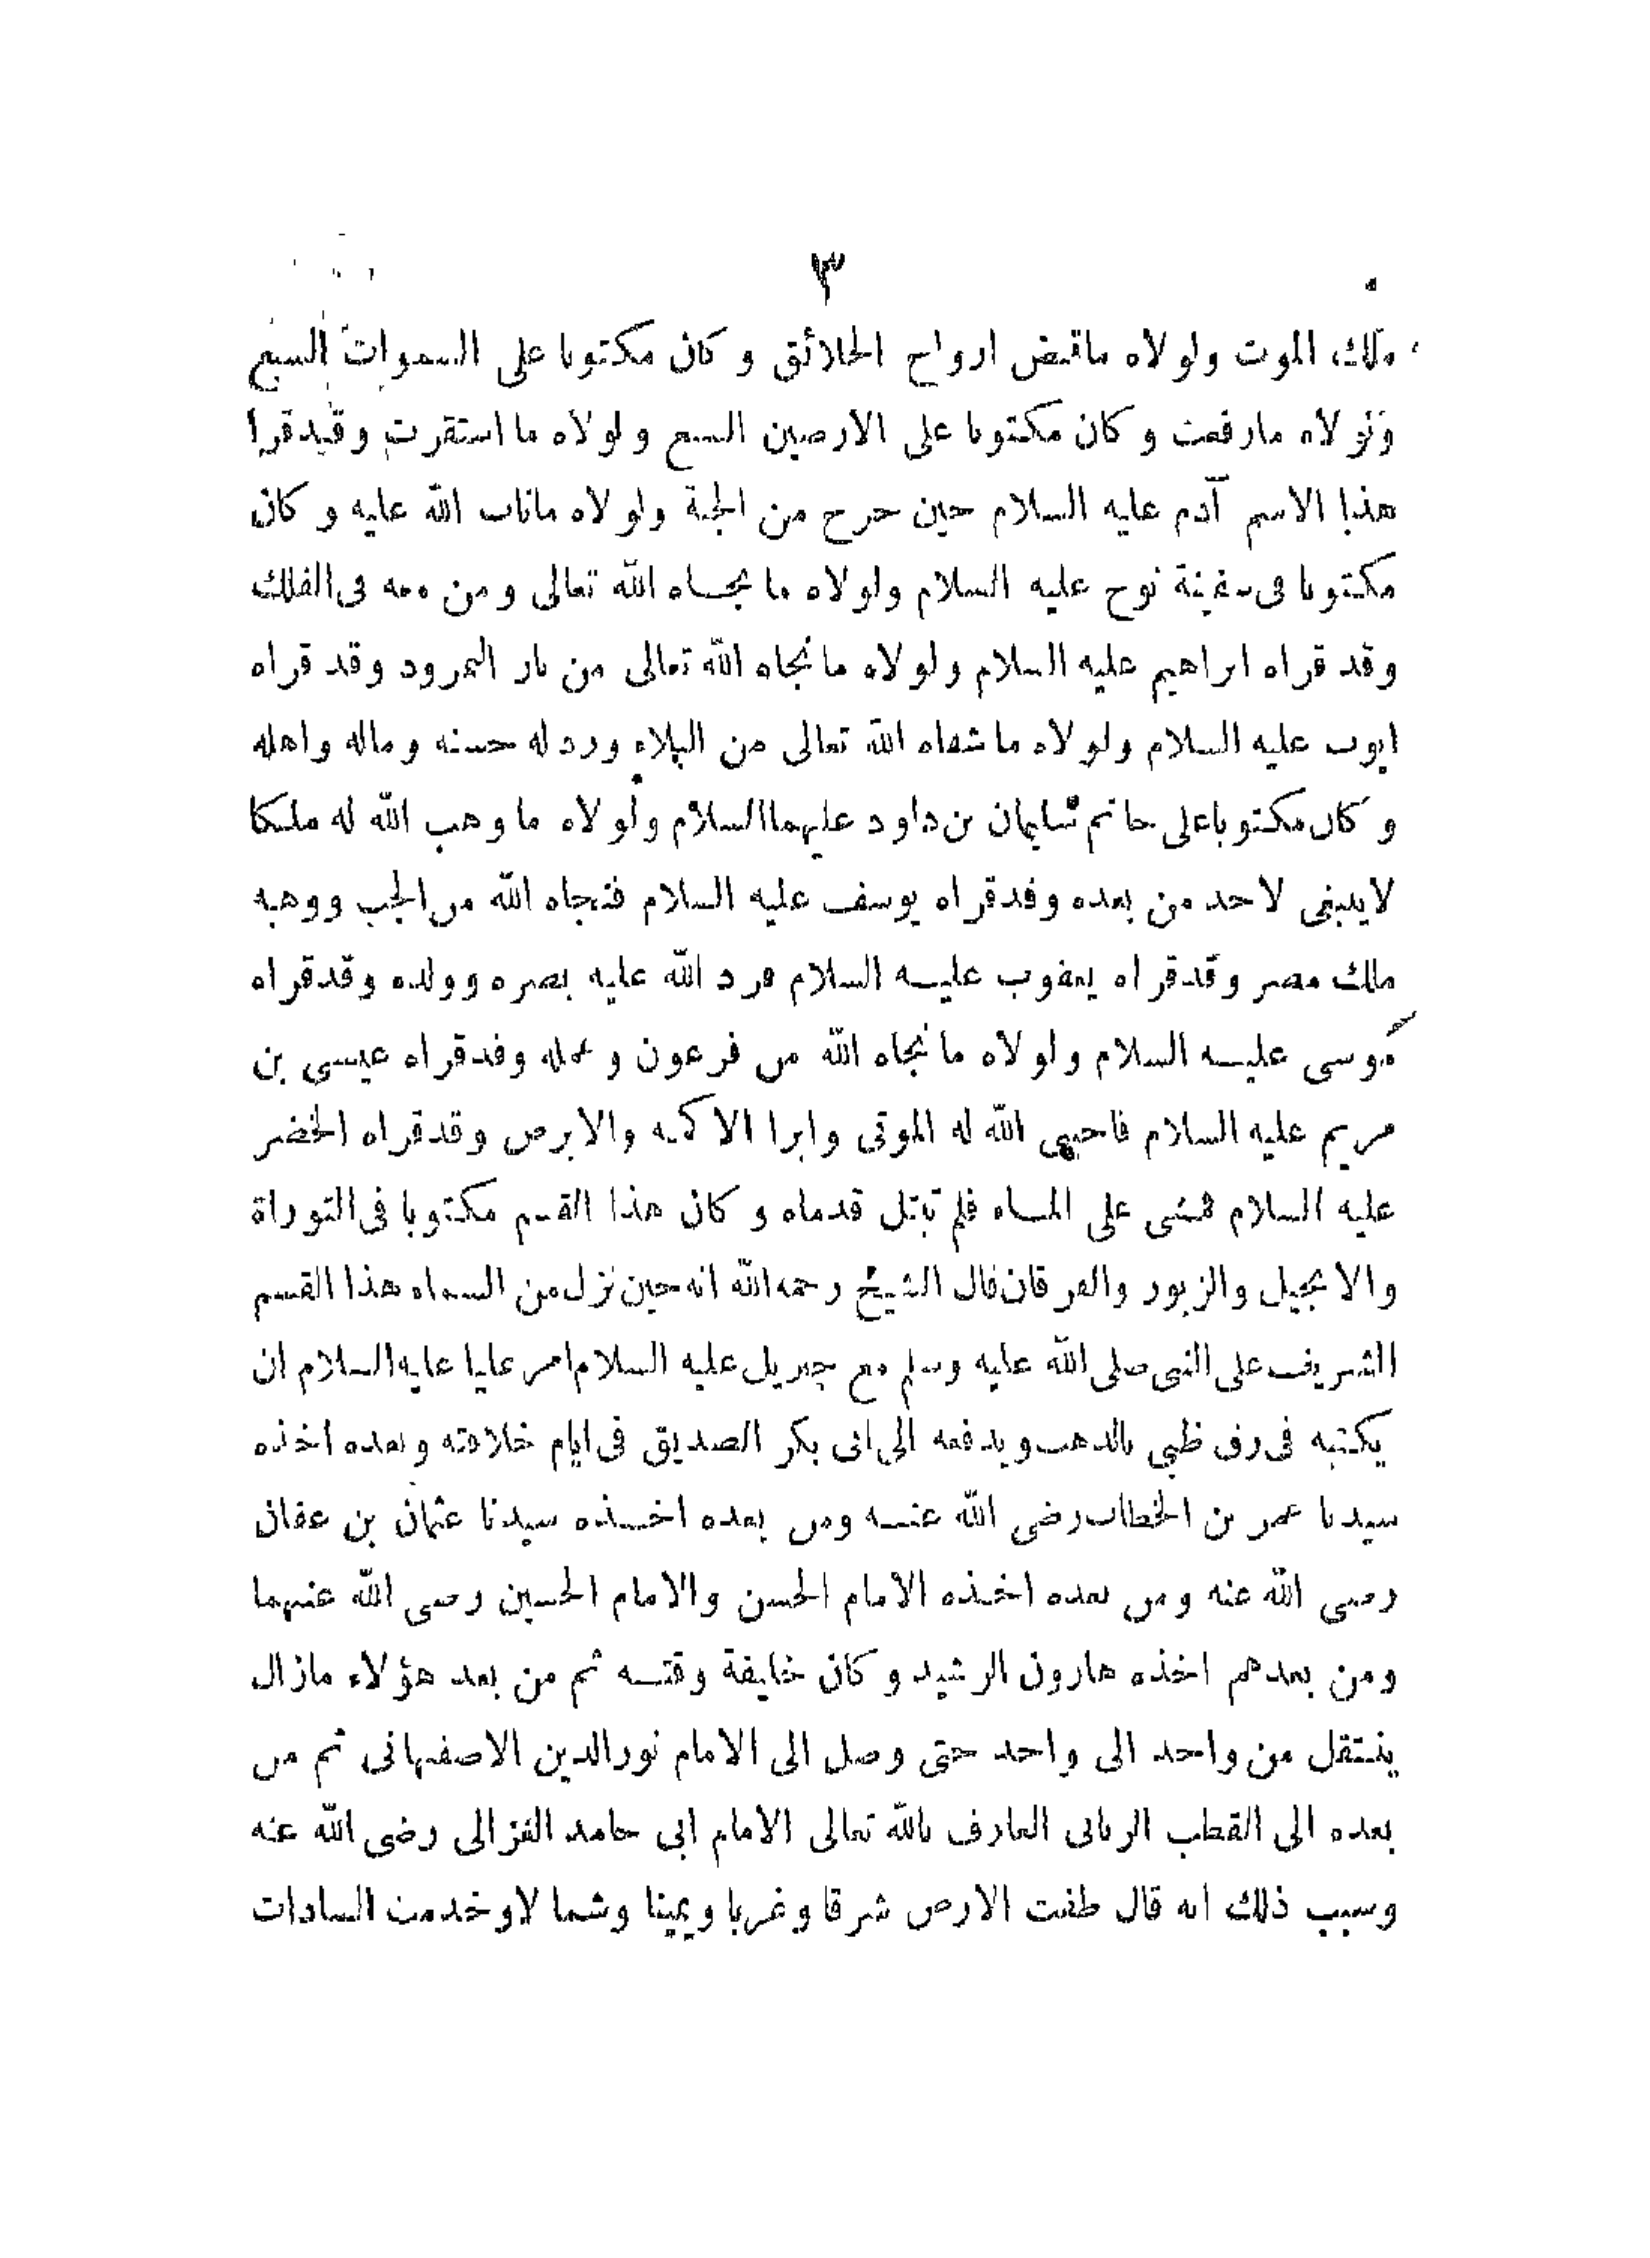 ٣
ملك الموت ولولاه ماقبض ارواح الخلائق وكان مكتوبا على السموات السبع
ولولاه مارفعت وكان مكتوبا على الارضين السبع ولولاه ما استقرت وقدقرا
هذا الاسم آدم عليه السلام حين خرج من الجنة ولولاه ماتاب الله عليه وكان
مكتوبا فى سفينة نوح عليه السلام ولولاه ما نجاه الله تعالى ومن معه فى الفلك
وقد قراه ابراهيم عليه السلام ولولاه مانجاه الله تعالى من نار النمرود وقد قراه
ايوب عليه السلام ولولاه ماشفاه الله تعالى من البلاء ورد له حسنه وماله واهله
وكان مكتوبا على خاتم سليمان بن داود عليهما السلام ولولاه ما وهب الله له ملكا
لاينبغى لاحد من بعده وقدقراه يوسف عليه السلام فنجاه الله من الجب ووهبه
ملك مصر وقدقراه يعقوب عليه السلام فرد الله عليه بصره وولده وقدقراه
موسى عليه السلام ولولاه مانجاه الله من فرعون وعمله وقدقراه عيسى بن
مريم عليه السلام فاحيى الله له الموتى وابرا الاكمه والابرص وقدقراه الخضر
عليه السلام فمشى على الماء فلم تبتل قدماه وكان هذا القسم مكتوبا فى التوراة
والانجيل والزبور والفرقان قال الشيخ رحمه الله انه حين نزل من السماء هذا القسم
الشريف على النبى صلى الله عليه وسلم مع جبريل عليه السلام امر عليا عليه السلام ان
يكتبه فى رق ظبى بالذهب ويدفعه الى ابى بكر الصديق فى ايام خلافته وبعده اخذه
سيدنا عمر بن الخطاب رضى الله عنه ومن بعده اخذه سيدنا عثمان بن عفان
رضى الله عنه ومن بعده اخذه الامام الحسن والامام الحسين رضى الله عنهما
ومن بعدهم اخذه هارون الرشيد وكان خليفة وقته ثم من بعد هؤلاء مازال
ينتقل من واحد الى واحد حتى وصل الى الامام نورالدين الاصفهانى ثم من
بعده الى القطب الربانى العارف بالله تعالى الامام ابى حامد الغزالى رضى الله عنه
وسبب ذلك انه قال طفت الارض شرقا وغربا ويمينا وشمالا وخدمت السادات